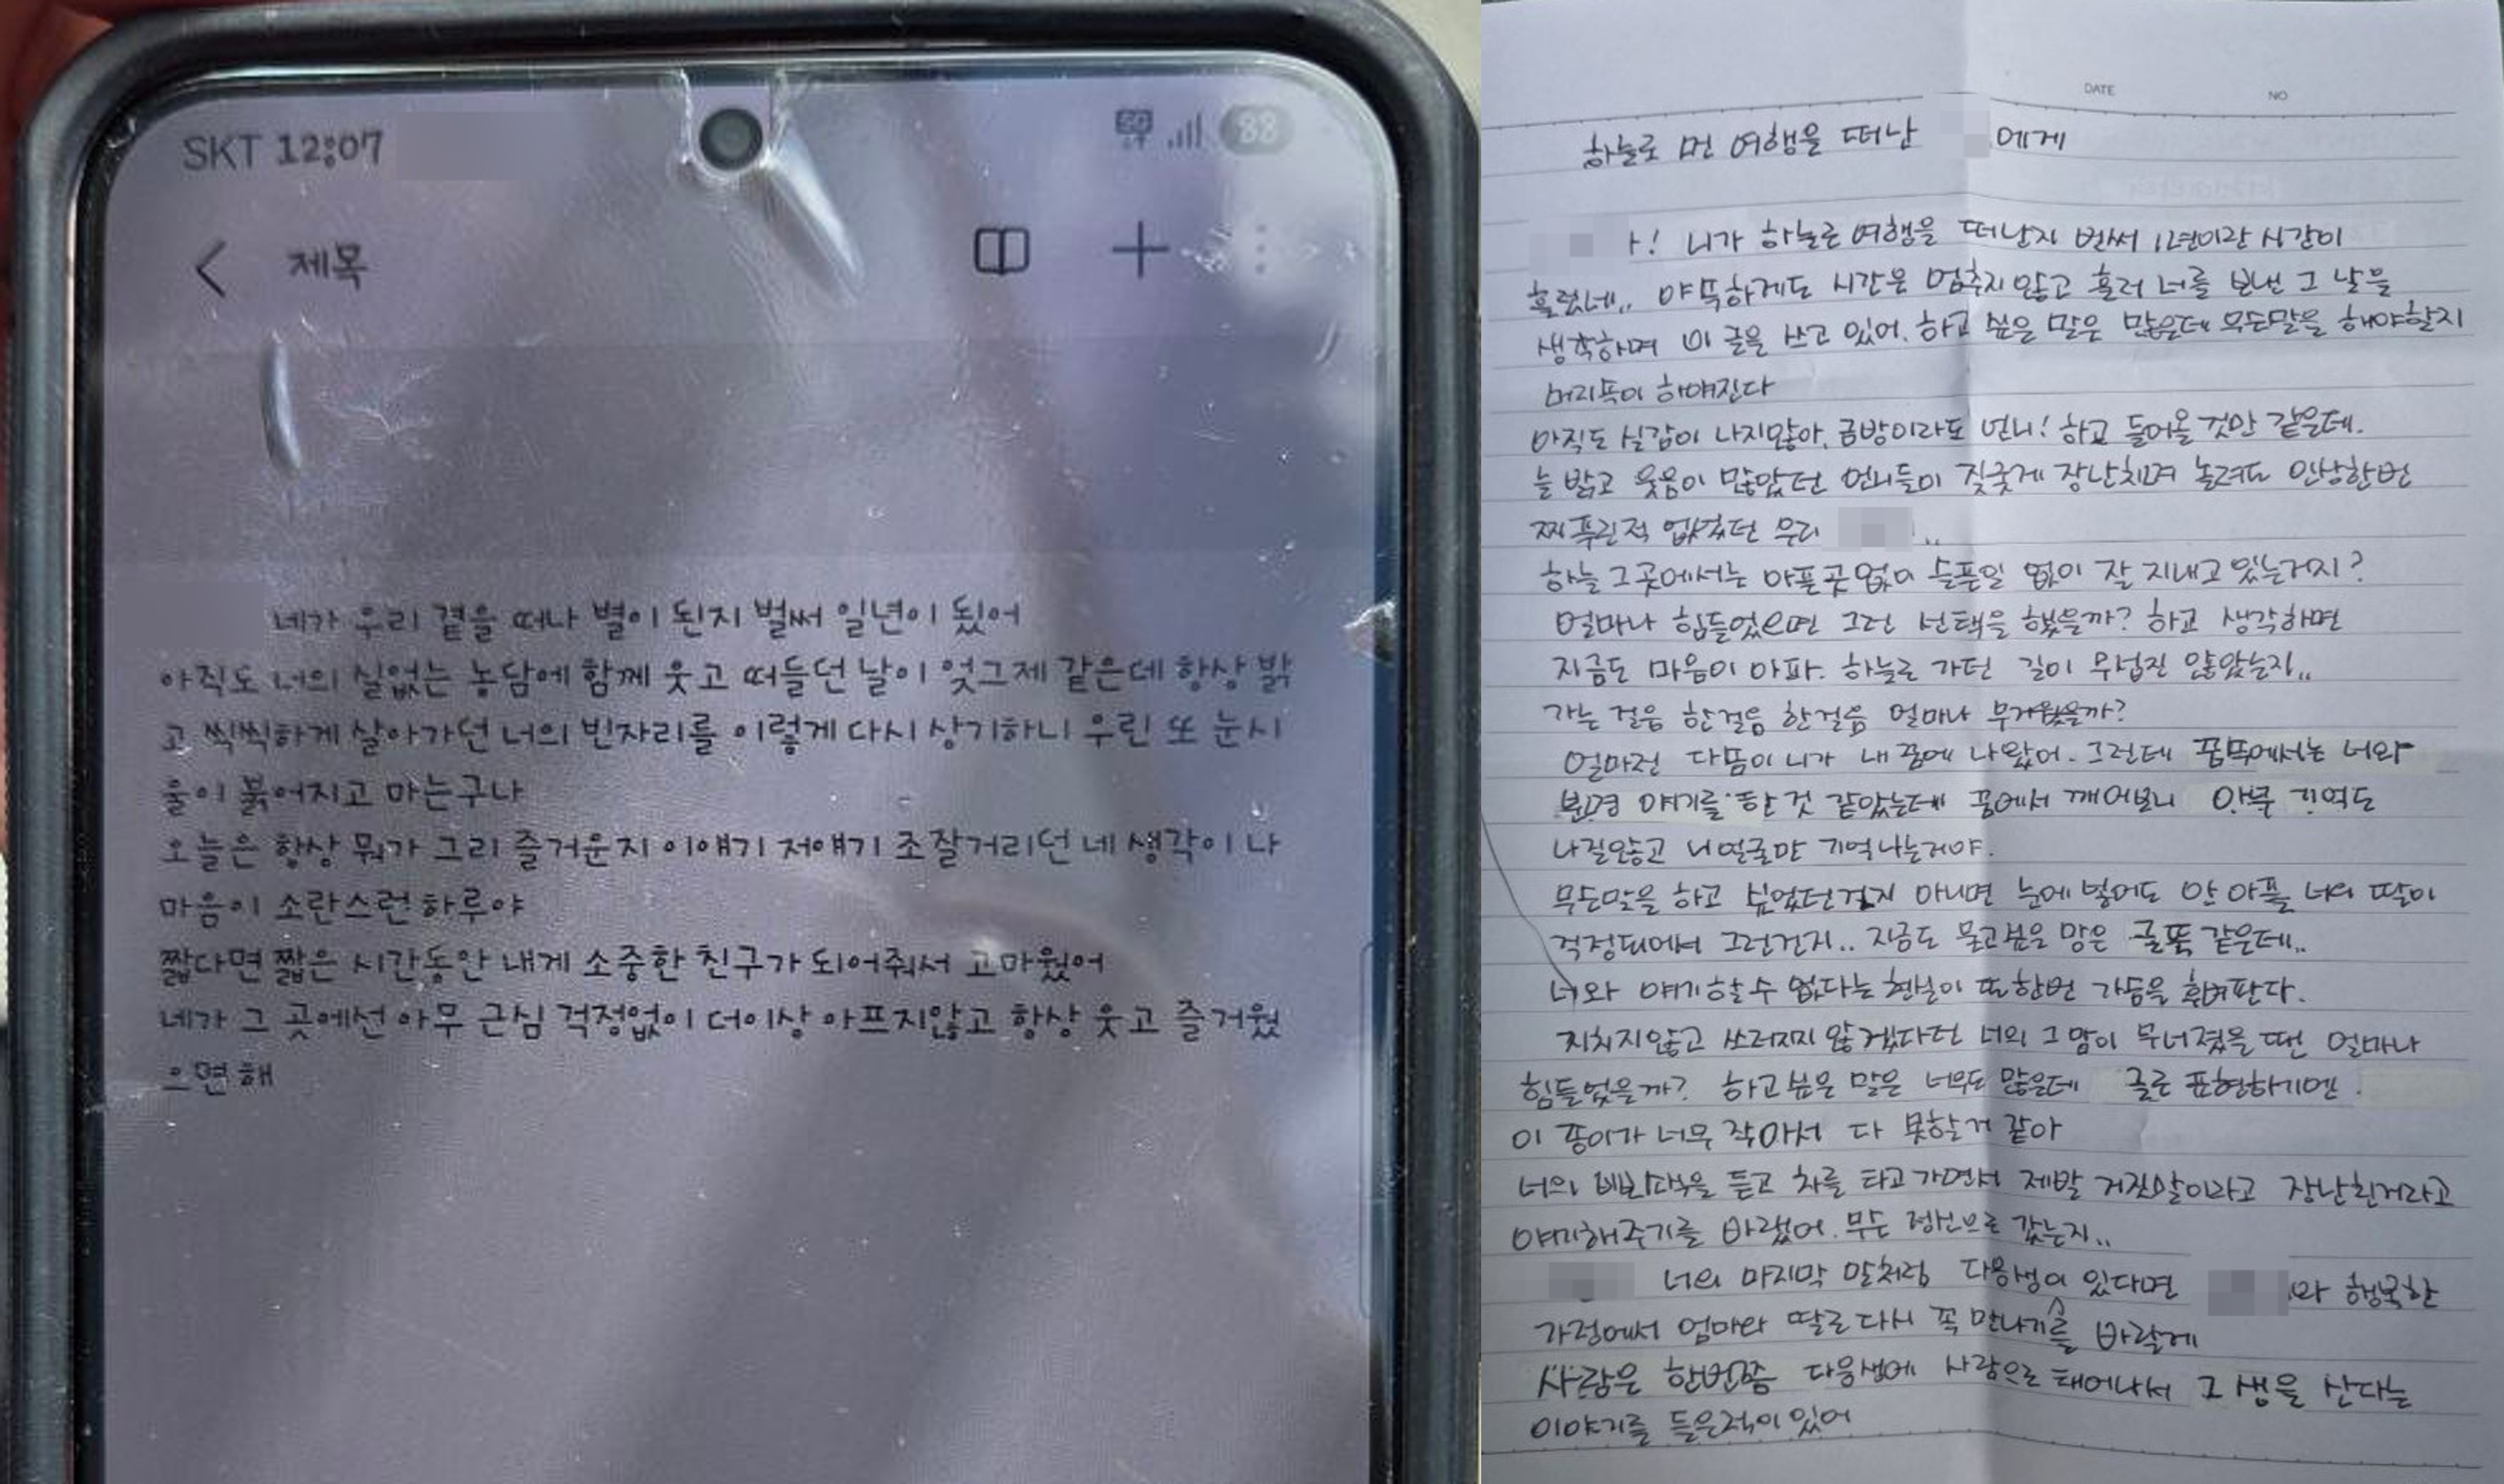 SKT 12:07
5G
88
제목
네가 우리 곁을 떠나 별이 된지 벌써 일년이 됬어
아직도 너의 실없는 농담에 함께 웃고 떠들던 날이 엊그제 같은데 항상 밝
고 씩씩하게 살아가던 너의 빈자리를 이렇게 다시 상기하니 우린 또 눈시
울이 붉어지고 마는구나
오늘은 항상 뭐가 그리 즐거운지 이얘기 저얘기 조잘거리던 네 생각이 나
마음이 소란스런 하루야
짧다면 짧은 시간동안 내게 소중한 친구가 되어줘서 고마웠어
네가 그 곳에선 아무 근심 걱정없이 더이상 아프지않고 항상 웃고 즐거웠
으면 해
DATE NO
하늘로 먼 여행을 떠난 에게
! 니가 하늘로 여행을 떠난지 벌써 1년이란 시간이
흘렀네.. 야속하게도 시간은 멈추지 않고 흘러 너를 보낸 그 날을
생각하며 이 글을 쓰고 있어. 하고 싶은 말은 많은데 무슨말을 해야할지
머리속이 하얘진다
아직도 실감이 나지않아. 금방이라도 언니! 하고 들어올 것만 같은데.
늘 밝고 웃음이 많았던 언니들이 짖궂게 장난치며 놀려도 인상한번
찌푸린적 없었던 우리 ..
하늘 그곳에서는 아픈곳 없이 슬픈일 없이 잘 지내고 있는거지?
얼마나 힘들었으면 그런 선택을 했을까? 하고 생각하면
지금도 마음이 아파. 하늘로 가던 길이 무섭진 않았는지..
가는 걸음 한걸음 한걸음 얼마나 무거웠을까?
얼마전 다음이 니가 내 꿈에 나왔어. 그런데 꿈속에서는 너와
분명 얘기를 한 것 같았는데 꿈에서 깨어보니 아무 기억도
나질않고 니얼굴만 기억나는거야.
무슨말을 하고 싶었던건지 아니면 눈에 넣어도 안 아플 너의 딸이
걱정되어서 그런건지.. 지금도 묻고싶은 맘은 굴뚝 같은데..
너와 얘기할 수 없다는 현실이 또한번 가슴을 후벼판다.
지치지않고 쓰러지지 않겠다던 너의 그 맘이 무너졌을 땐 얼마나
힘들었을까? 하고싶은 말은 너무도 많은데 글로 표현하기엔
이 종이가 너무 작아서 다 못할거 같아
너의 비보를 듣고 차를 타고가면서 제발 거짓말이라고 장난친거라고
얘기해주기를 바랬어. 무슨 정신으로 갔는지..
너의 마지막 말처럼 다음생이 있다면 와 행복한
가정에서 엄마와 딸로 다시 꼭 만나기를 바랄게
사람은 한번쯤 다음생에 사람으로 태어나서 그 생을 산다는
이야기를 들은적이 있어